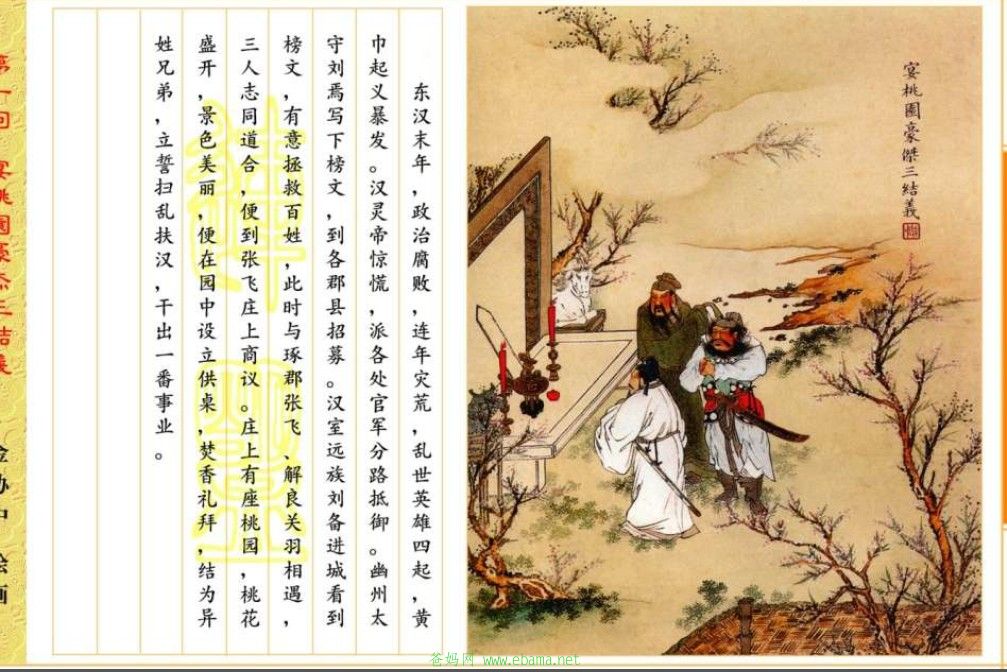 宴桃園豪傑三結義
东汉末年，政治腐败，连年灾荒，乱世英雄四起，黄
巾起义暴发。汉灵帝惊慌，派各处官军分路抵御。幽州太
守刘焉写下榜文，到各郡县招募。汉室远族刘备进城看到
榜文，有意拯救百姓，此时与琢郡张飞、解良关羽相遇，
三人志同道合，便到张飞庄上商议。庄上有座桃园，桃花
盛开，景色美丽，便在园中设立供桌，焚香礼拜，结为异
姓兄弟，立誓扫乱扶汉，干出一番事业。
第一回 宴桃園豪杰三结義 金协中 绘画
爸妈网 www.ebama.net